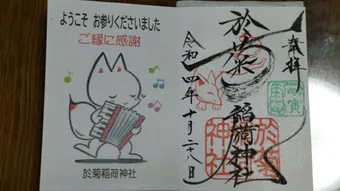 ようこそ お参りくださいました
ご縁に感謝
於菊稲荷神社
奉拝
於菊稲荷神社
令和四年十月二十八日
於菊
神社